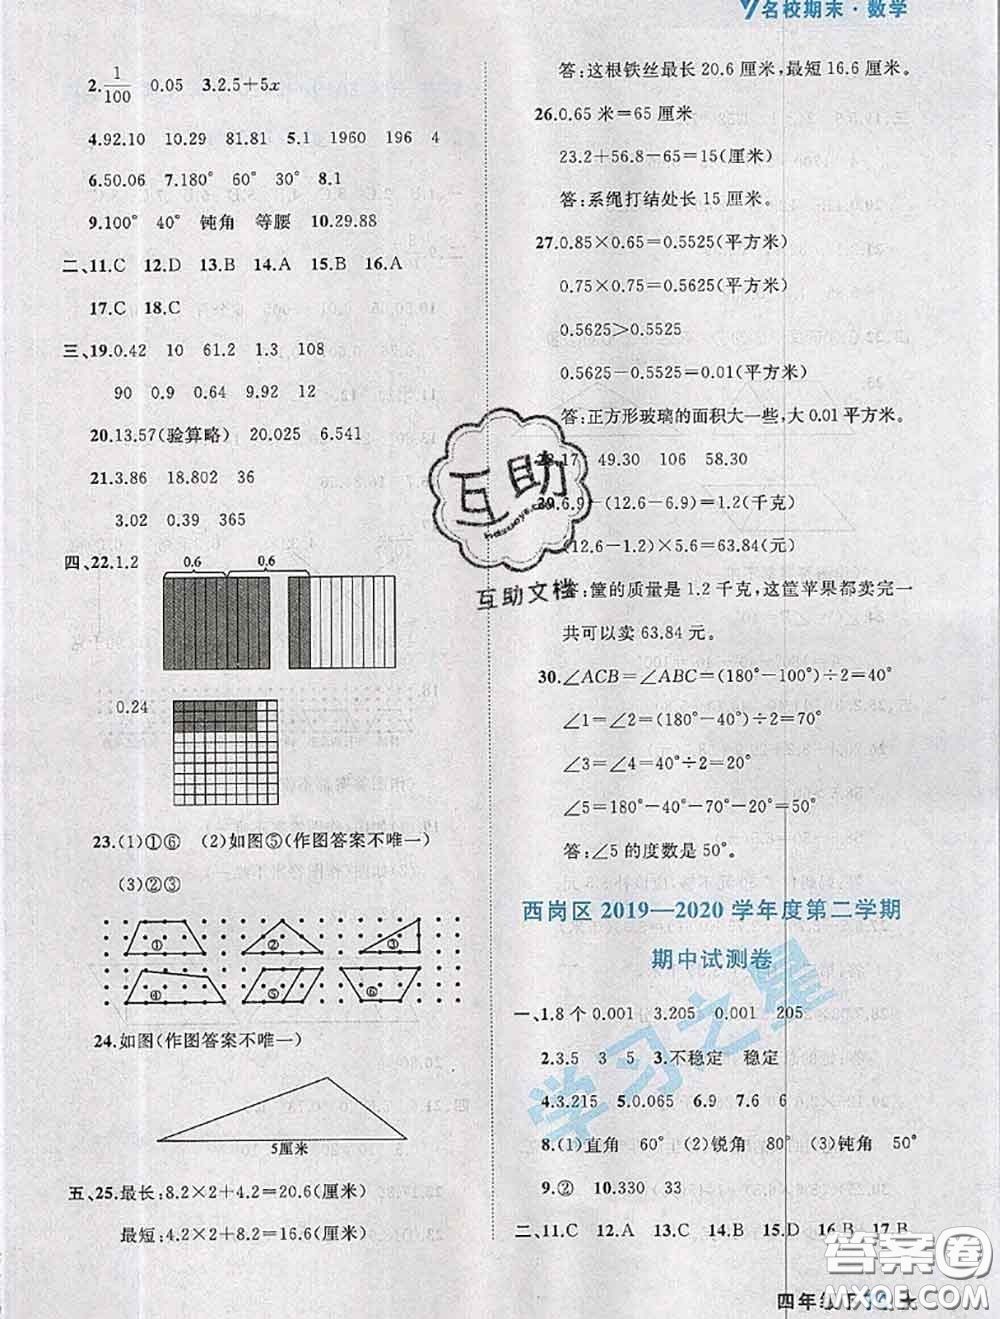 名校期末·数学
2.1/100 0.05 3.2.5+5x
4.92.10 10.29 81.81 5.1 1960 196 4
6.50.06 7.180° 60° 30° 8.1
9.100° 40° 钝角 等腰 10.29.88
二、11.C 12.D 13.B 14.A 15.B 16.A
17.C 18.C
三、19.0.42 10 61.2 1.3 108
90 0.9 0.64 9.92 12
20.13.57(验算略) 20.025 6.541
21.3.86 18.802 36
3.02 0.39 365
四、22.1.2 0.6 0.6
0.24
23.(1)①⑥ (2)如图⑤(作图答案不唯一)
(3)②③
① ② ③
④ ⑤ ⑥
24.如图(作图答案不唯一)
5厘米
五、25.最长:8.2×2+4.2=20.6(厘米)
最短:4.2×2+8.2=16.6(厘米)
答:这根铁丝最长 20.6 厘米,最短 16.6 厘米。
26.0.65 米=65 厘米
23.2+56.8-65=15(厘米)
答:系绳打结处长 15 厘米。
27.0.85×0.65=0.5525(平方米)
0.75×0.75=0.5625(平方米)
0.5625>0.5525
0.5625-0.5525=0.01(平方米)
答:正方形玻璃的面积大一些,大 0.01 平方米。
28.17 49.30 106 58.30
29.6.9-(12.6-6.9)=1.2(千克)
(12.6-1.2)×5.6=63.84(元)
答:筐的质量是 1.2 千克，这筐苹果都卖完一
共可以卖 63.84 元。
30.∠ACB=∠ABC=(180°-100°)÷2=40°
∠1=∠2=(180°-40°)÷2=70°
∠3=∠4=40°÷2=20°
∠5=180°-40°-70°-20°=50°
答:∠5 的度数是 50°。
西岗区 2019—2020 学年度第二学期
期中试测卷
一、1.8个 0.001 3.205 0.001 205
2.3.5 3 5 3.不稳定 稳定
4.3.215 5.0.065 6.9 7.6 6
8.(1)直角 60° (2)锐角 80° (3)钝角 50°
9.② 10.330 33
二、11.C 12.A 13.C 14.B 15.D 16.B 17.B
四年级
互助
互助文档
学习之星
答案圈
MXQE.COM